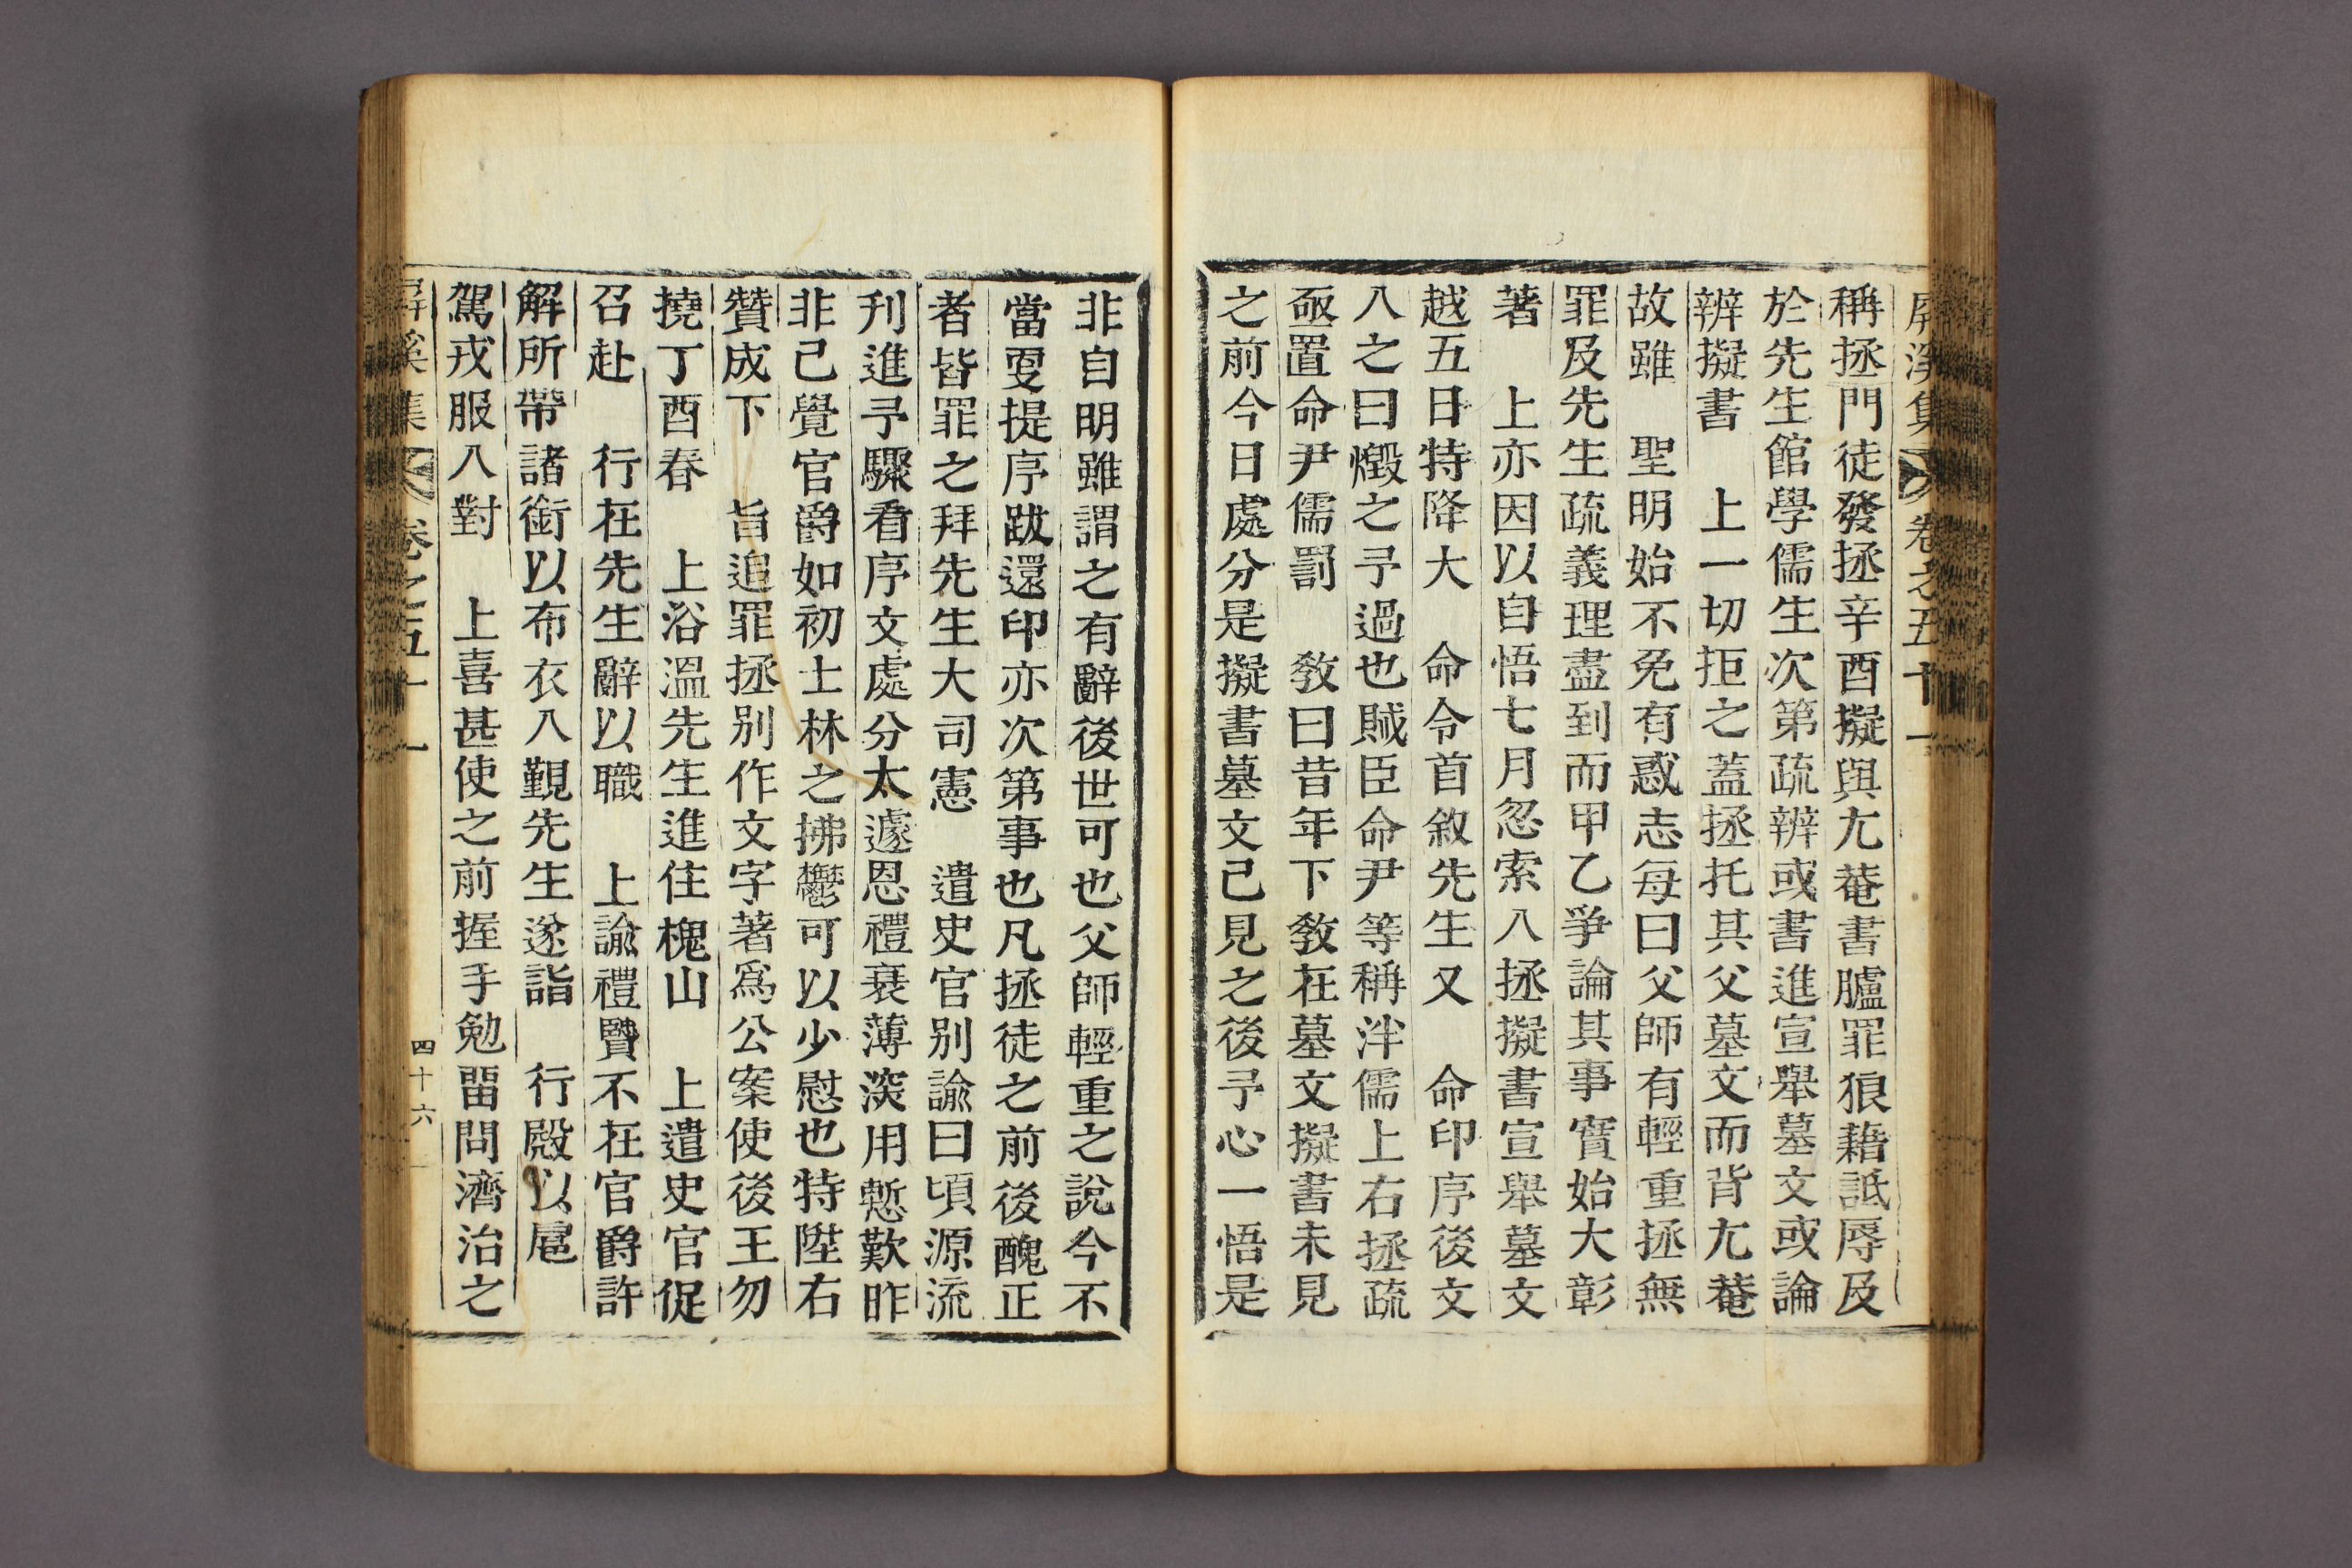 屛溪集 卷之五十一
稱拯門徒發拯辛酉擬與尢菴書臚罪狼藉詆辱及
於先生館學儒生次第疏辨或書進宣舉墓文或論
辨擬書 上一切拒之蓋拯托其父墓文而背尢菴
故雖 聖明始不免有惑志每曰父師有輕重拯無
罪及先生疏義理盡到而甲乙爭論其事實始大彰
著 上亦因以自悟七月忽索入拯擬書宣舉墓文
越五日特降大 命令首敘先生又 命印序後文
入之曰燬之予過也贓臣命尹等稱泮儒上右拯疏
亟置命尹儒罰 敎曰昔年下敎在墓文擬書未見
之前今日處分是擬書墓文己見之後予心一悟是
非自明雖謂之有辭後世可也父師輕重之說今不
當更提序跋還印亦次第事也凡拯徒之前後醜正
者皆罪之拜先生大司憲 遣史官別諭曰頃源流
刊進予驟看序文處分太遽恩禮衰薄深用慙歎昨
非己覺官爵如初士林之拂鬱可以少慰也特陞右
贊成下 旨追罪拯別作文字著爲公案使後王勿
撓丁酉春 上浴溫先生進住槐山 上遣史官促
召赴 行在先生辭以職 上諭禮贒不在官爵許
解所帶諸銜以布衣入覲先生遂詣 行殿以扈
駕戎服入對 上喜甚使之前握手勉留問濟治之
屛溪集 卷之五十一 四十六